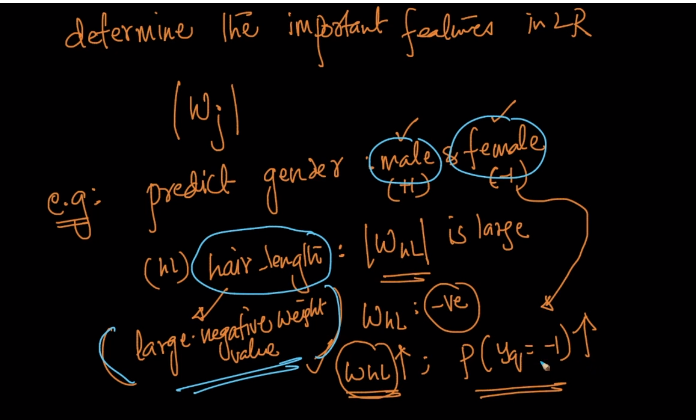 determine the important features in LR
|Wj|
e.g: predict gender : male & female
(+1) (-1)
(hL) hair-length : |WhL| is large
large negative weight value
WhL : -ve
WhL ↑ ; P(yq = -1) ↑